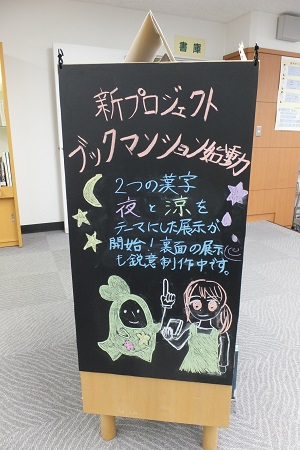 書庫
新プロジェクト
ブックマンション始動
2つの漢字
夜と涼を
テーマにした展示が
開始！裏面の展示
も鋭意制作中です。